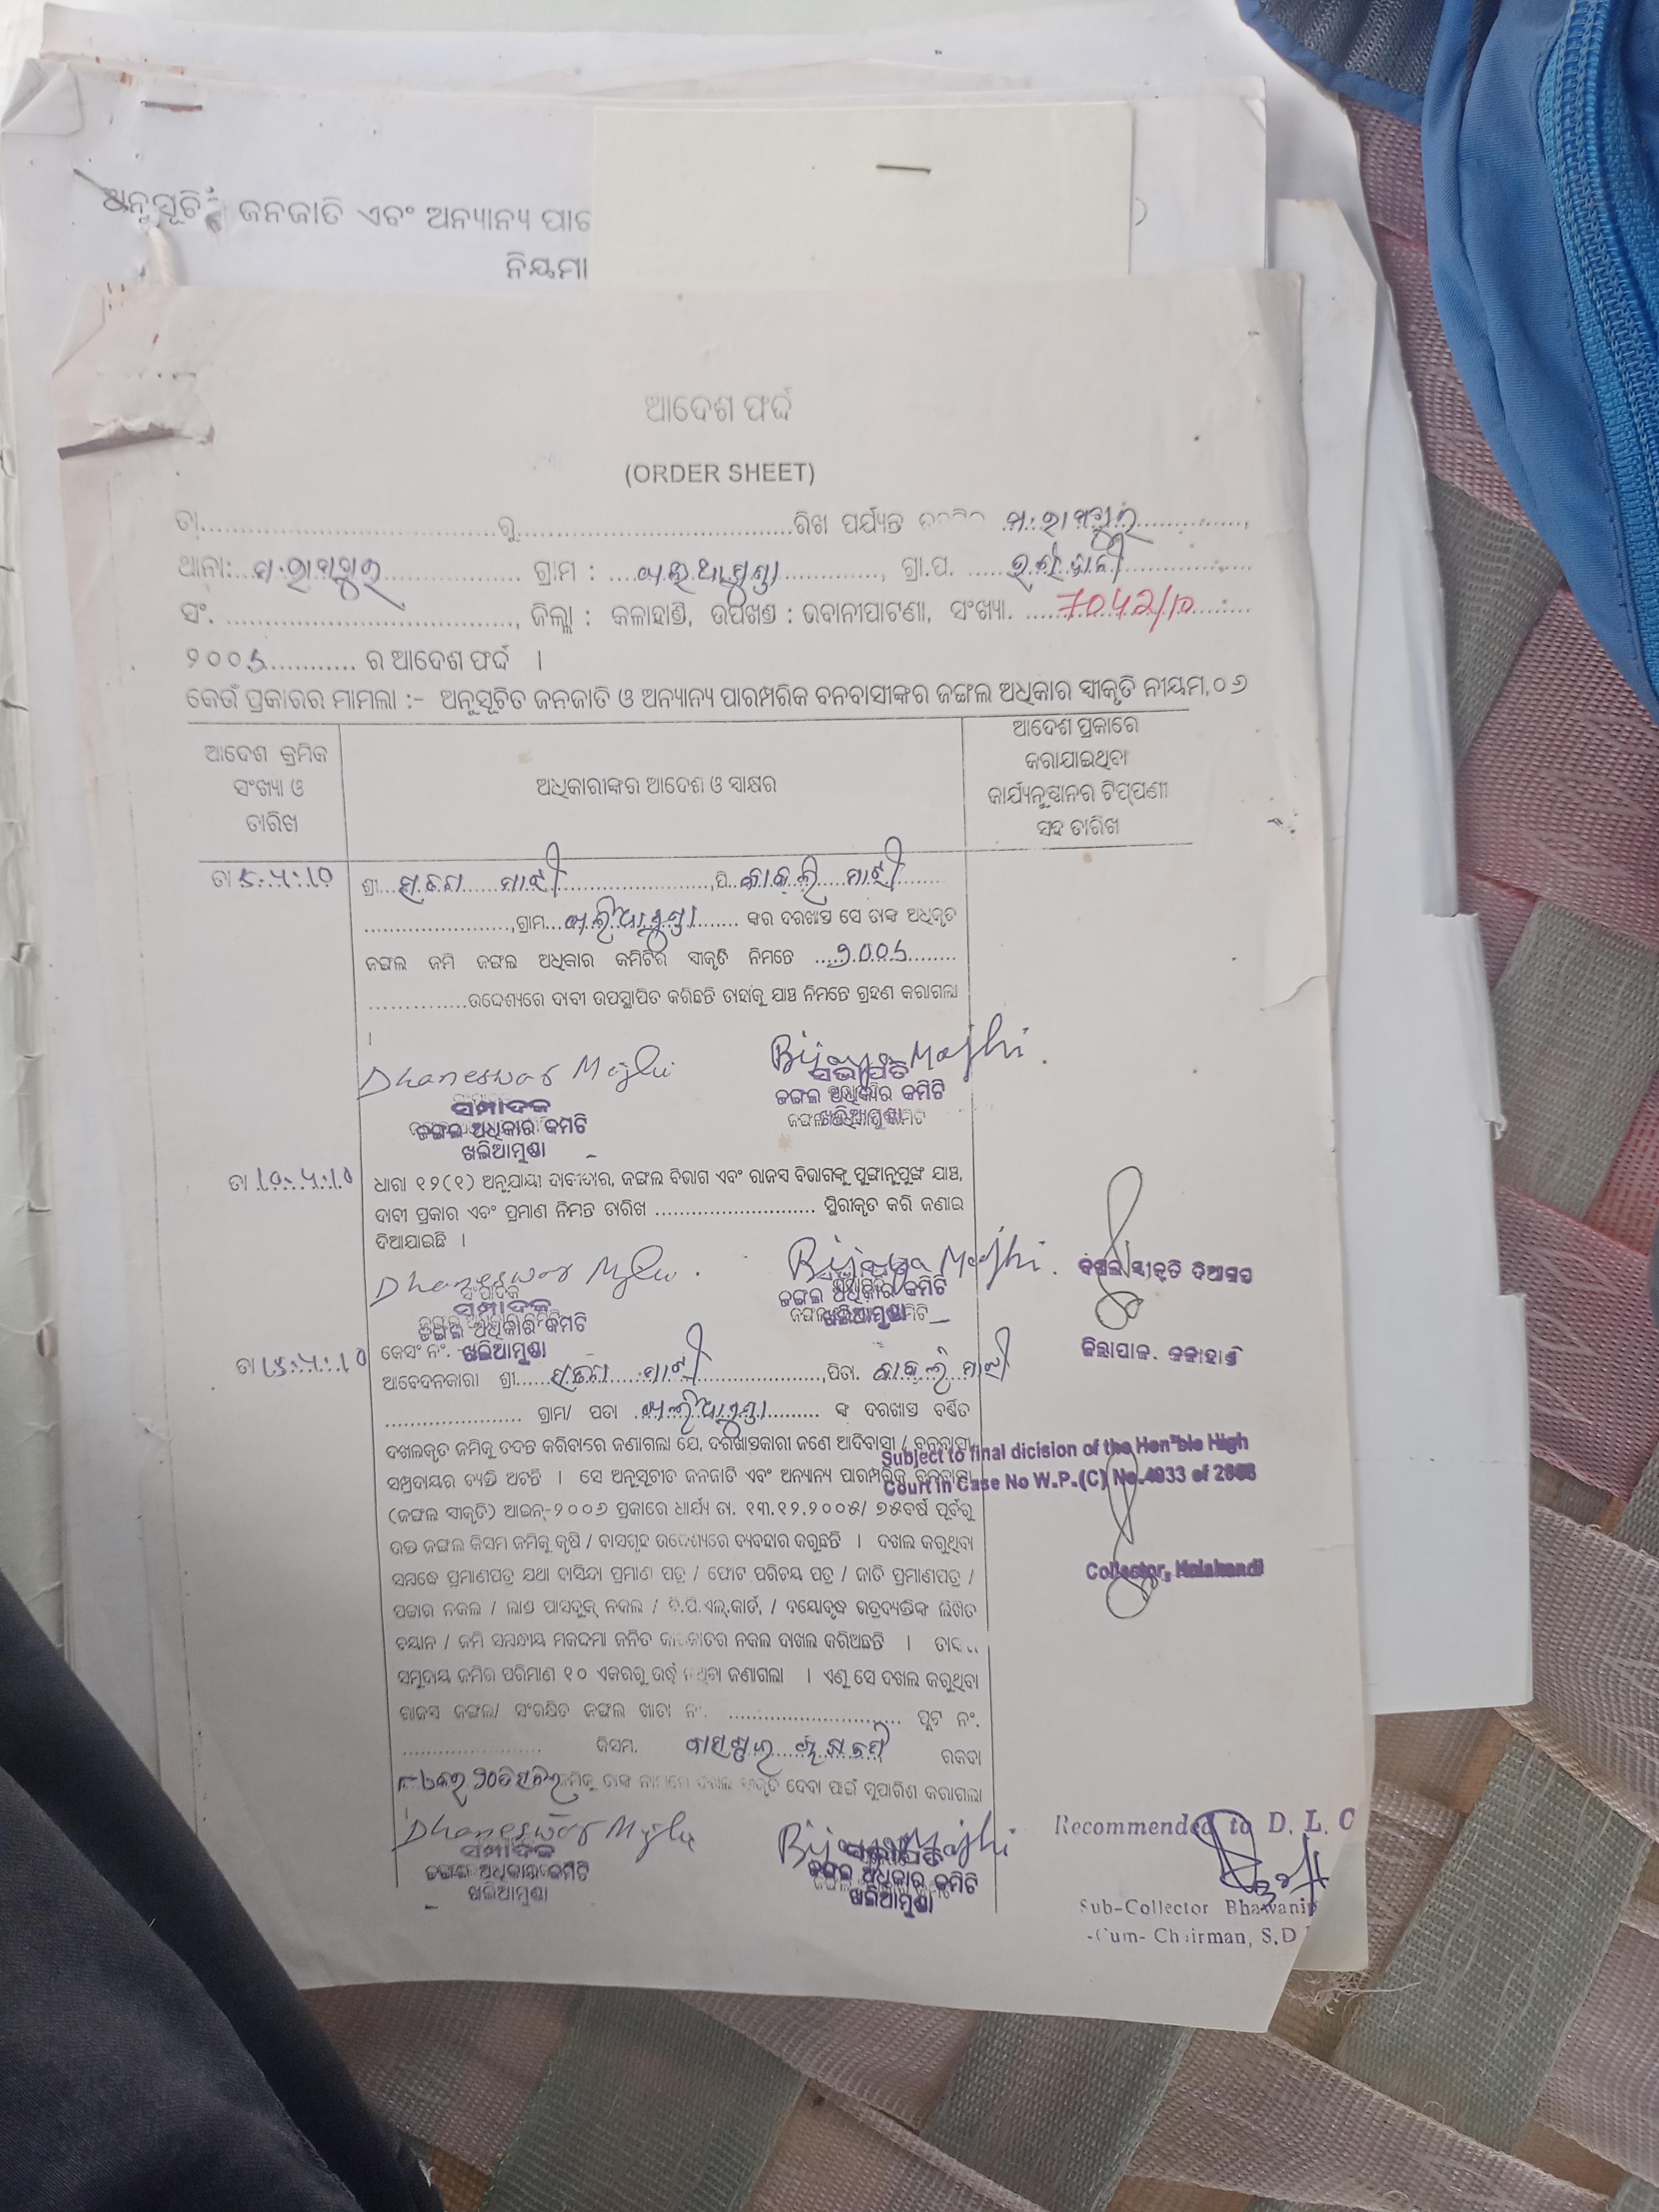 ଜନଜାତି ଏବଂ ଅନ୍ୟାନ୍ୟ
ଆଦେଶ ଫର୍ଦ୍ଦ
(ORDER SHEET)
ତା..............................ରୁ..............................ରିଖ ପର୍ଯ୍ୟନ୍ତ
ଥାନା: ମ.ରାମପୁର ଗ୍ରାମ : ................, ଗ୍ରା.ପ.
ସଂ. .............................., ଜିଲ୍ଲା : କଳାହାଣ୍ଡି, ଉପଖଣ୍ଡ : ଭବାନୀପାଟଣା, ସଂଖ୍ୟା. 7042/10
ର ଆଦେଶ ଫର୍ଦ୍ଦ ।
କେଉଁ ପ୍ରକାରର ମାମଲା :- ଅନୁସୂଚିତ ଜନଜାତି ଓ ଅନ୍ୟାନ୍ୟ ପାରମ୍ପରିକ ବନବାସୀଙ୍କର ଜଙ୍ଗଲ ଅଧିକାର ସ୍ୱୀକୃତି ନୀୟମ,୦୬
ଆଦେଶ କ୍ରମିକ
ସଂଖ୍ୟା ଓ
ତାରିଖ
ଅଧିକାରୀଙ୍କର ଆଦେଶ ଓ ସ୍ୱାକ୍ଷର
ଆଦେଶ ପ୍ରକାରେ
କରାଯାଇଥିବା
କାର୍ଯ୍ୟନୁଷ୍ଠାନର ଟିପ୍ପଣୀ
ସହ ତାରିଖ
ତା 5.4.10
ଶ୍ରୀ ମାଝୀ ,ପି. ମାଝୀ
,ଗ୍ରାମ ଖଲିଆମୁଣ୍ଡା ଙ୍କର ଦରଖାସ୍ତ ସେ ତାଙ୍କ ଅଧିକୃତ
ଜଙ୍ଗଲ ଜମି ଜଙ୍ଗଲ ଅଧିକାର କମିଟିର ସ୍ୱୀକୃତି ନିମନ୍ତେ
ଉଦ୍ଦେଶ୍ୟରେ ଦାବୀ ଉପସ୍ଥାପିତ କରିଛନ୍ତି ତାହାକୁ ଯାଞ୍ଚ ନିମନ୍ତେ ଗ୍ରହଣ କରାଗଲା
।
Dhaneswar Majhi Bijaya Majhi
ସମ୍ପାଦକ
ଜଙ୍ଗଲ ଅଧିକାର କମିଟି
ଖଲିଆମୁଣ୍ଡା
ସଭାପତି
ଜଙ୍ଗଲ ଅଧିକାର କମିଟି
ଖଲିଆମୁଣ୍ଡା
ତା 10.4.10
ଧାରା ୧୨(୧) ଅନୁଯାୟୀ ଦାବୀଦାର, ଜଙ୍ଗଲ ବିଭାଗ ଏବଂ ରାଜସ୍ୱ ବିଭାଗଙ୍କୁ ପୁଙ୍ଖାନୁପୁଙ୍ଖ ଯାଞ୍ଚ,
ଦାବୀ ପ୍ରକାର ଏବଂ ପ୍ରମାଣ ନିମନ୍ତ ତାରିଖ ........................... ସ୍ଥିରୀକୃତ କରି ଜଣାଇ
ଦିଆଯାଇଛି ।
Dhaneswar Majhi Bijaya Majhi
ସମ୍ପାଦକ
ଜଙ୍ଗଲ ଅଧିକାର କମିଟି
ଖଲିଆମୁଣ୍ଡା
ଜଙ୍ଗଲ ଅଧିକାର କମିଟି
ଖଲିଆମୁଣ୍ଡା
ଦଖଲ ସ୍ୱୀକୃତି ଦିଆଗଲା
ଜିଲ୍ଲାପାଳ, କଳାହାଣ୍ଡି
ତା 15.4.10
କେସଂ ନଂ.
ଆବେଦନକାରୀ ଶ୍ରୀ ମାଝୀ ,ପିତା. ମାଝୀ
ଗ୍ରାମ/ ପଡା ଖଲିଆମୁଣ୍ଡା ଙ୍କ ଦରଖାସ୍ତ ବର୍ଣ୍ଣିତ
ଦଖଲକୃତ ଜମିକୁ ତଦନ୍ତ କରିବାରେ ଜଣାଗଲା ଯେ, ଦରଖାସ୍ତକାରୀ ଜଣେ ଆଦିବାସୀ / ବନବାସୀ
ସମ୍ପ୍ରଦାୟର ବ୍ୟକ୍ତି ଅଟନ୍ତି । ସେ ଅନୁସୂଚୀତ ଜନଜାତି ଏବଂ ଅନ୍ୟାନ୍ୟ ପାରମ୍ପରିକ ବନବାସୀ
(ଜଙ୍ଗଲ ସ୍ୱୀକୃତି) ଆଇନ୍-୨୦୦୬ ପ୍ରକାରେ ଧାର୍ଯ୍ୟ ତା. ୧୩.୧୨.୨୦୦୫/ ୭୫ବର୍ଷ ପୂର୍ବରୁ
ଉକ୍ତ ଜଙ୍ଗଲ କିସମ ଜମିକୁ କୃଷି / ବାସଗୃହ ଉଦ୍ଦେଶ୍ୟରେ ବ୍ୟବହାର କରୁଛନ୍ତି । ଦଖଲ କରୁଥିବା
ସମ୍ବନ୍ଧେ ପ୍ରମାଣପତ୍ର ଯଥା ବାସିନ୍ଦା ପ୍ରମାଣ ପତ୍ର / ଫୋଟ ପରିଚୟ ପତ୍ର / ଜାତି ପ୍ରମାଣପତ୍ର /
ପଟ୍ଟାର ନକଲ / ଲାଣ୍ଡ ପାସବୁକ୍ ନକଲ / ବି.ପି.ଏଲ୍.କାର୍ଡ, / ବୟୋବୃଦ୍ଧ ଭଦ୍ରବ୍ୟକ୍ତିଙ୍କ ଲିଖିତ
ବୟାନ / ଜମି ସମ୍ବନ୍ଧୀୟ ମକଦ୍ଦମା ଜନିତ ନକଲ ଦାଖଲ କରିଅଛନ୍ତି ।
ସମୁଦାୟ ଜମିର ପରିମାଣ ୧୦ ଏକରରୁ ଉର୍ଦ୍ଧ୍ୱ ନଥିବା ଜଣାଗଲା । ଏଣୁ ସେ ଦଖଲ କରୁଥିବା
ରାଜସ୍ୱ ଜଙ୍ଗଲ/ ସଂରକ୍ଷିତ ଜଙ୍ଗଲ ଖାତା ନଂ. ............................ ପ୍ଲଟ ନଂ.
କିସମ. ରକବା
ଦେବା ପାଇଁ ସୁପାରିଶ କରାଗଲା
Subject to final dicision of the Hon'ble High
Court in Case No W.P.(C) No.4933 of 2008
Collector, Kalahandi
Dhaneswar Majhi Bijaya Majhi
ସମ୍ପାଦକ
ଜଙ୍ଗଲ ଅଧିକାର କମିଟି
ଖଲିଆମୁଣ୍ଡା
ସଭାପତି
ଜଙ୍ଗଲ ଅଧିକାର କମିଟି
ଖଲିଆମୁଣ୍ଡା
Recommended to D. L. C
Sub-Collector
-Cum- Chairman, S.D